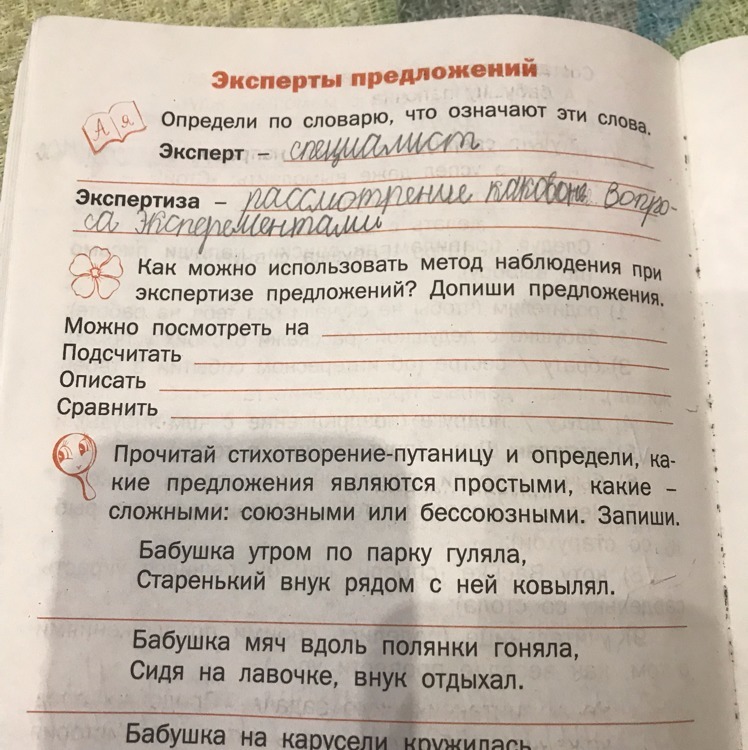 Эксперты предложений
А я
Определи по словарю, что означают эти слова.
Эксперт – специалист
Экспертиза – рассмотрение вопро-
са эксперементами
Как можно использовать метод наблюдения при
экспертизе предложений? Допиши предложения.
Можно посмотреть на
Подсчитать
Описать
Сравнить
Прочитай стихотворение-путаницу и определи, ка-
кие предложения являются простыми, какие –
сложными: союзными или бессоюзными. Запиши.
Бабушка утром по парку гуляла,
Старенький внук рядом с ней ковылял.
Бабушка мяч вдоль полянки гоняла,
Сидя на лавочке, внук отдыхал.
Бабушка на карусели кружилась